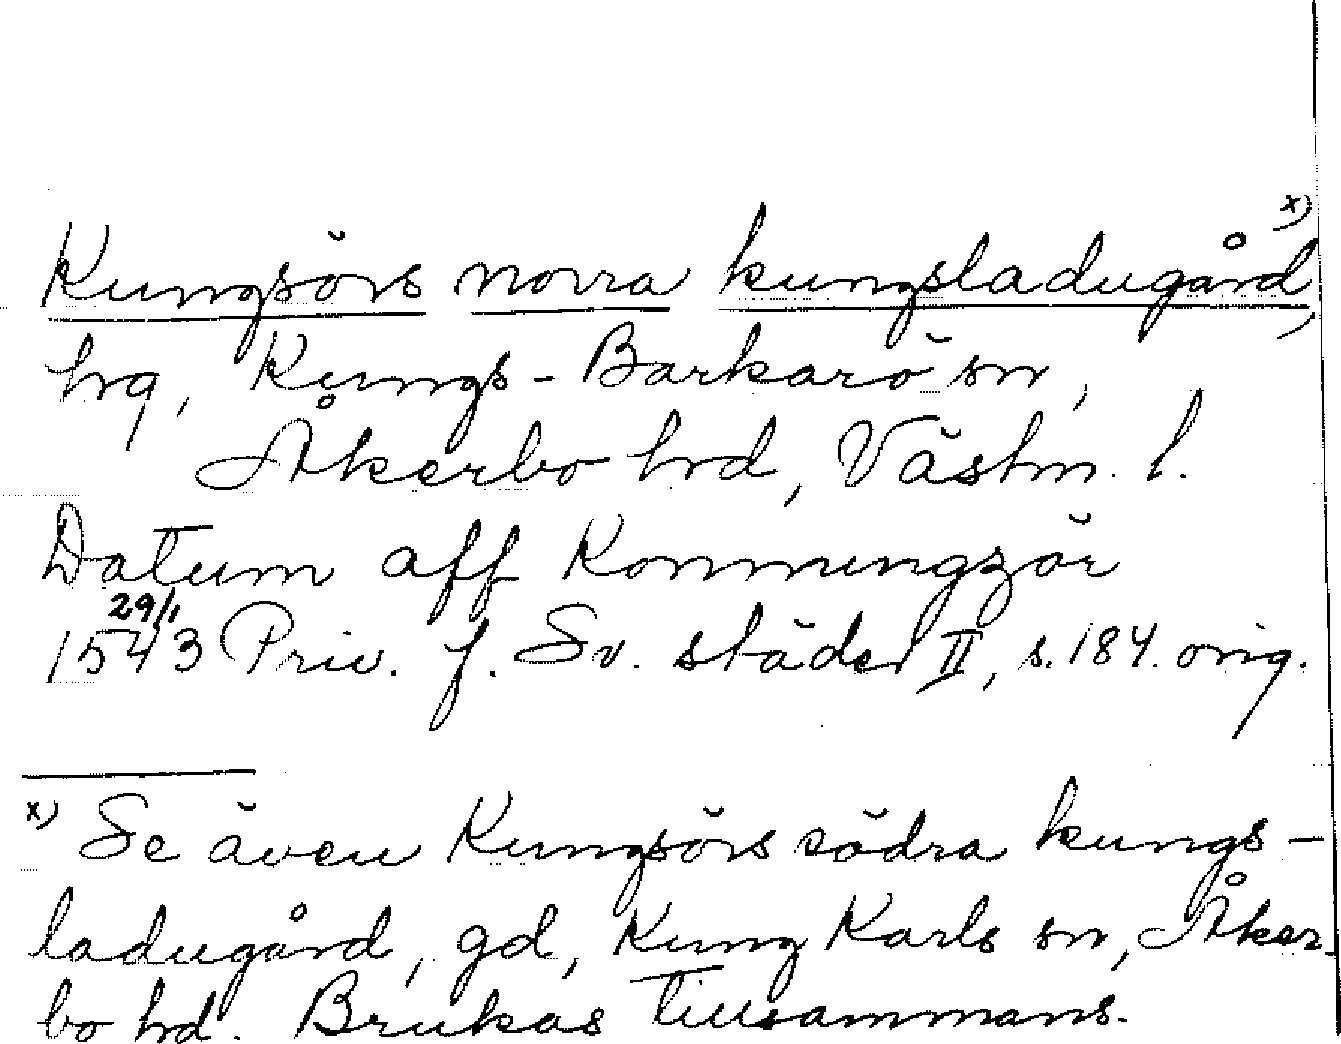 Kungsörs norra kungsladugård, x)
hrg, Kungs-Barkarö sn,
Åkerbo hrd, Västm. l.
Datum aff Konnungzör
29/1
1543 Priv. f. Sv. städer II, s. 184. orig.
x) Se även Kungsörs södra kungs-
ladugård, gd, Kung Karls sn, Åker-
bo hd. Brukas tillsammans.